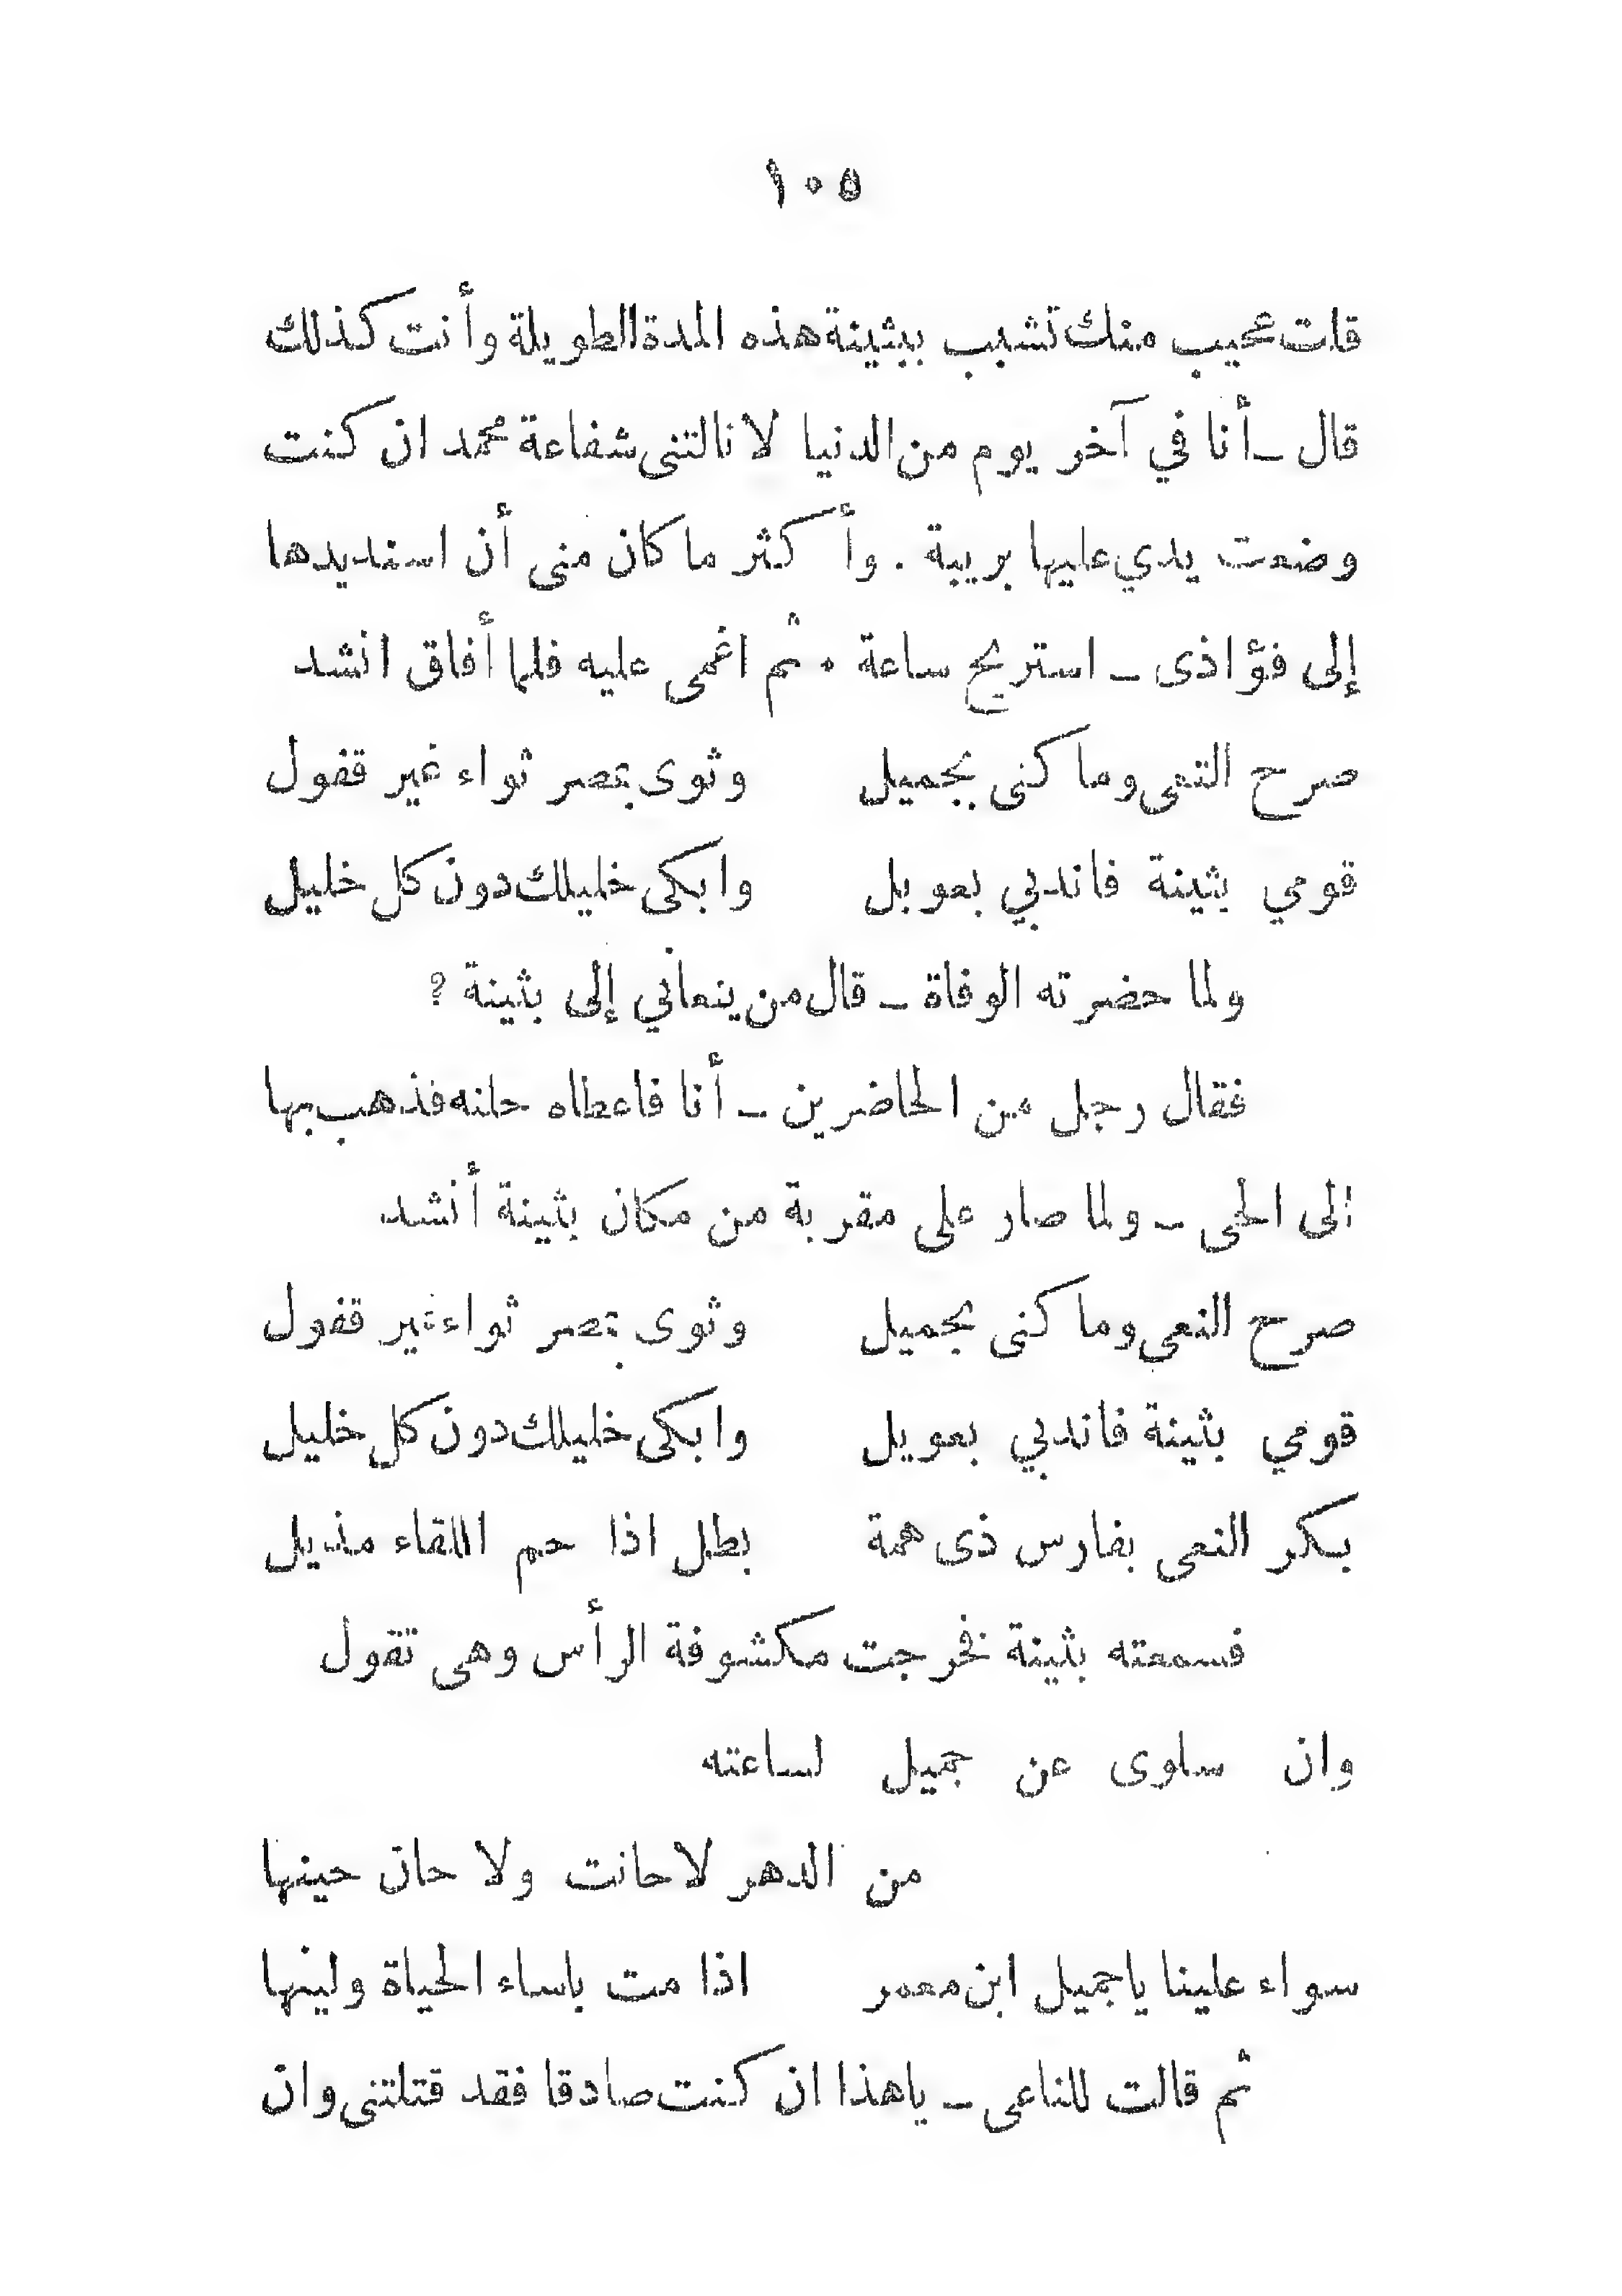 ١٠٥
قلت عجيب منك تشبب ببثينة هذه المدة الطويلة وأنت كذلك
قال ــ أنا في آخر يوم من الدنيا لا نالتنى شفاعة محمد ان كنت
وضعت يدي عليها بريبة . وأكثر ما كان منى أن اسند يدها
إلى فؤاذى ــ استريح ساعة . ثم اغمى عليه فلما أفاق انشد
صرح النعى وما كنى بجميل وثوى بمصر ثواء غير قفول
قومي بثينة فاندبي بعويل وابكى خليلك دون كل خليل
ولما حضرته الوفاة ــ قال من ينعاني إلى بثينة ?
فقال رجل من الحاضرين ــ أنا فاعطاه حلته فذهب بها
الى الحى ــ ولما صار على مقربة من مكان بثينة أنشد
صرح النعى وما كنى بجميل وثوى بمصر ثواء غير قفول
قومي بثينة فاندبي بعويل وابكى خليلك دون كل خليل
بكر النعى بفارس ذى همة بطل اذا حم اللقاء مذيل
فسمعته بثينة فخرجت مكشوفة الرأس وهى تقول
وان سلوى عن جميل لساعته
من الدهر لا حانت ولا حان حينها
سواء علينا يا جميل ابن معمر اذا مت باساء الحياة ولينها
ثم قالت للناعى ــ ياهذا ان كنت صادقا فقد قتلتنى وان